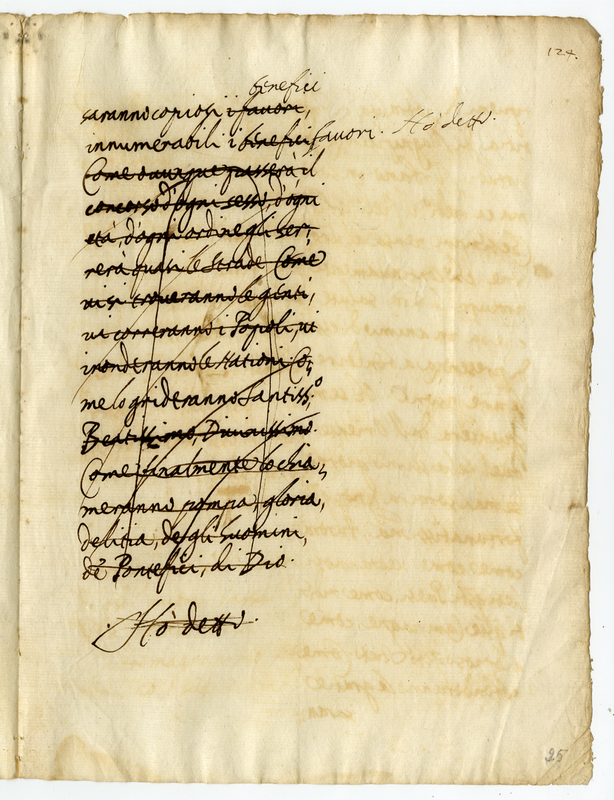 124.
benefici
saranno copiosi i favori,
innumerabili i benefici favori. Hò detto.
Come dunque passerà il
concorso d'ogni sesso, d'ogni
età, d'ogni ordine gli ser-
rerà quasi le strade Come
vi si troveranno le genti,
vi correranno i Popoli, vi
inonderanno le Nationi. Co-
me lo grideranno Santiss.o
Beatissimo, Divinissimo.
Come finalmente lo chia-
meranno pompa, gloria,
delitia, degli huomini,
de' Pontefici, di Dio.
Hò detto.
25